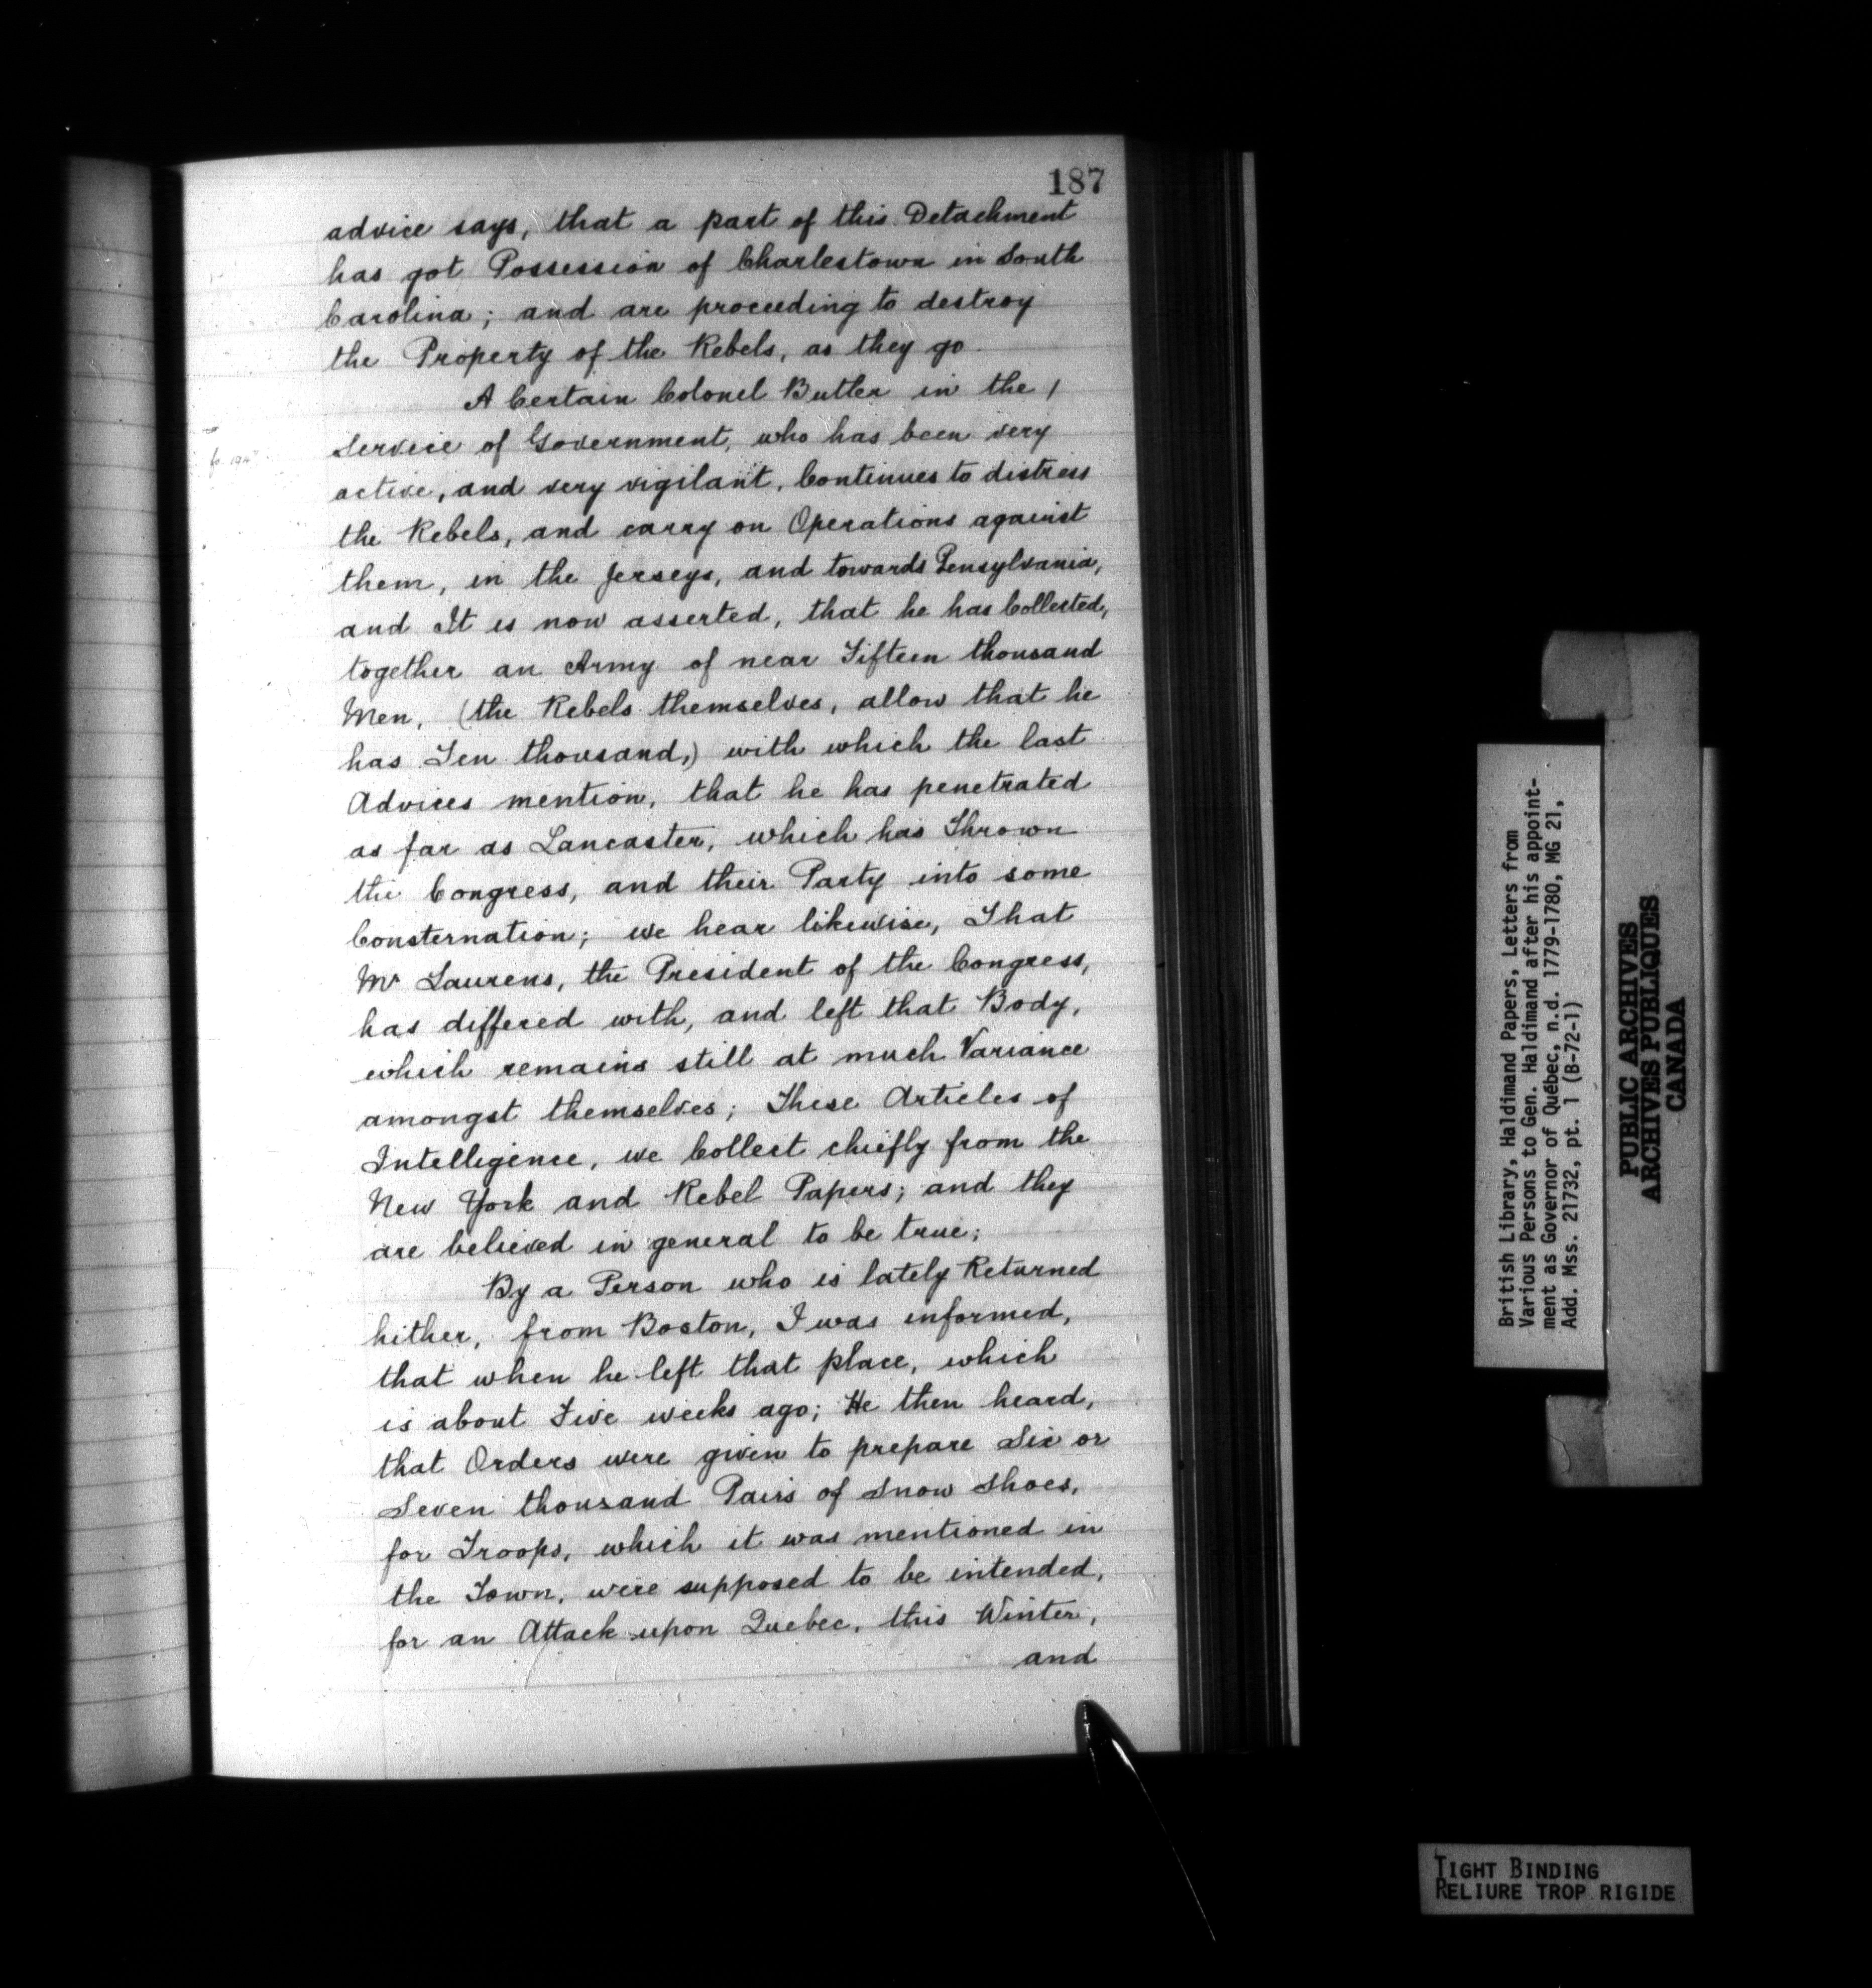 187
advice says, that a part of this Detachment
has got Possession of Charlestown in South
Carolina; and are proceeding to destroy
the Property of the Rebels, as they go.
A Certain Colonel Butler in the /
Service of Government, who has been very
active, and very vigilant, Continues to distress
the Rebels, and carry on Operations against
them, in the Jerseys, and towards Pensylvania,
and It is now asserted, that he has Collected,
together an Army of near Fifteen thousand
Men, (the Rebels themselves, allow that he
has Ten thousand,) with which the last
Advices mention, that he has penetrated
as far as Lancaster, which has Thrown
the Congress, and their Party into some
Consternation; we hear likewise, That
Mr Laurens, the President of the Congress,
has differed with, and left that Body,
which remains still at much Variance
amongst themselves; These Articles of
Intelligence, we Collect chiefly from the
New York and Rebel Papers; and they
are believed in general to be true;
By a Person who is lately Returned
hither, from Boston, I was informed,
that when he left that place, which
is about Five weeks ago; He then heard,
that Orders were given to prepare Six or
Seven thousand Pairs of Snow Shoes,
for Troops, which it was mentioned in
the Town, were supposed to be intended,
for an Attack upon Quebec, this Winter,
and
British Library, Haldimand Papers, Letters from
Various Persons to Gen. Haldimand after his appoint-
ment as Governor of Québec, n.d. 1779-1780, MG 21,
Add. Mss. 21732, pt. 1 (B-72-1)
PUBLIC ARCHIVES
ARCHIVES PUBLIQUES
CANADA
TIGHT BINDING
RELIURE TROP RIGIDE